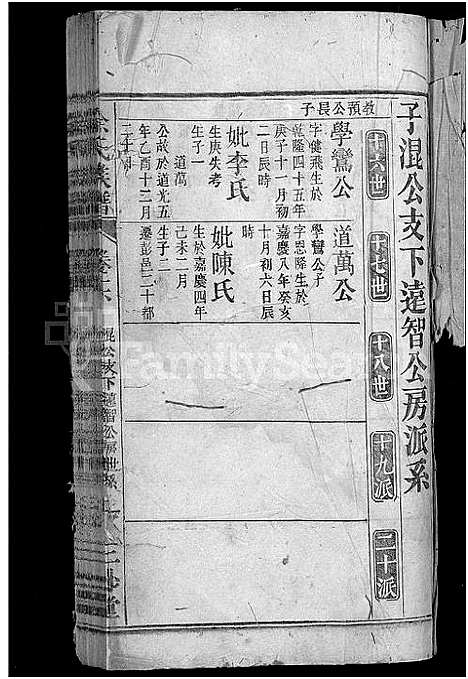 子混公支下遠智公房派系
十六世
十七世
十八世
十九派
二十派
教預公長子
學鸞公
字健飛生於
乾隆四十五年
庚子十一月初
二日辰時
妣李氏
生庚失考
生子一
道萬
公故於道光五
年乙酉十二月
道萬公
學鸞公子
字恩隆生於
嘉慶八年癸亥
十月初六日辰
時
妣陳氏
生於嘉慶四年
己未二月
生子二
遷彭邑二十都
余氏族譜
混公支下遠智公房世系
FamilySearch